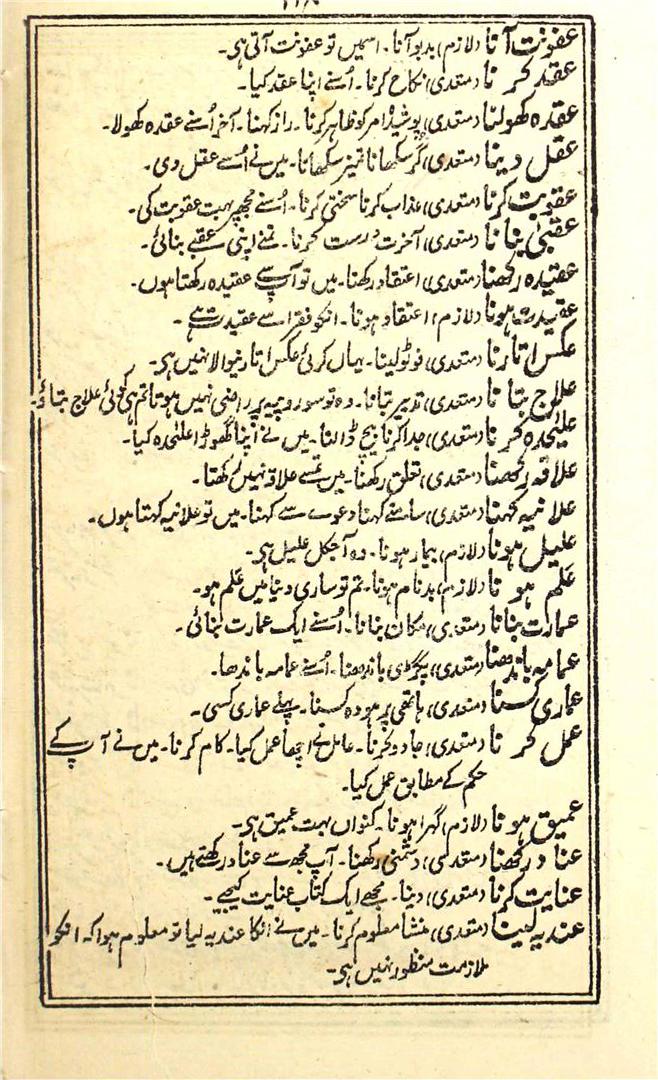 عفونت آنا (لازم) بدبو آنا۔ اسمیں تو عفونت آتی ہی۔
عقد کرنا (متعدی) نکاح کرنا۔ اُسنے اپنا عقد کیا۔
عقدہ کھولنا (متعدی) پوشیدہ امر کو ظاہر کرنا۔ راز کہنا۔ آخر اُسنے عقدہ کھولا۔
عقل دینا (متعدی) گر سکھانا تمیز سکھانا۔ میں نے اُسے عقل دی۔
عقوبت کرنا (متعدی) عذاب کرنا سختی کرنا۔ اُسنے مجھپر بہت عقوبت کی۔
عقبیٰ بنانا (متعدی) آخرت درست کرنا۔ تمنے اپنی عقبےٰ بنائی۔
عقیدہ رکھنا (متعدی) اعتقاد رکھنا۔ میں تو آپ سے عقیدہ رکھتا ہوں۔
عقیدت ہونا (لازم) اعتقاد ہونا۔ انکو فقرا سے عقیدت ہے۔
عکس اتارنا (متعدی) فوٹو لینا۔ یہاں کوئی عکس اتارنیوالا نہیں ہی۔
علاج بتانا (متعدی) تدبیر بتانا۔ وہ تو سو روپیہ پر راضی نہیں ہوتا تم ہی کوئی علاج بتاؤ۔
علیٰحدہ کرنا (متعدی) جدا کرنا بیچ ڈالنا۔ میں نے اپنا گھوڑا علیٰحدہ کیا۔
علاقہ رکھنا (متعدی) تعلق رکھنا۔ میں تمسے علاقہ نہیں رکھتا۔
علانیہ کہنا (متعدی) سامنے کہنا دعوے سے کہنا۔ میں تو علانیہ کہتا ہوں۔
علیل ہونا (لازم) بیمار ہونا۔ وہ آجکل علیل ہی۔
عَلَم ہونا (لازم) بدنام ہونا۔ تم تو ساری دنیا میں عَلَم ہو۔
عمارت بنانا (متعدی) مکان بنانا۔ اُسنے ایک عمارت بنائی۔
عمامہ باندھنا (متعدی) پگڑی باندھنا۔ اُسنے عمامہ باندھا۔
عماری کسنا (متعدی) ہاتھی پر ہودہ کسنا۔ پہلے عماری کسی۔
عمل کرنا (متعدی) جادو کرنا۔ عامل نے اچھا عمل کیا۔ کام کرنا۔ میں نے آپ کے
حکم کے مطابق عمل کیا۔
عمیق ہونا (لازم) گہرا ہونا۔ کنواں بہت عمیق ہی۔
عناد رکھنا (متعدی) دشمنی رکھنا۔ آپ مجھ سے عناد رکھتے ہیں۔
عنایت کرنا (متعدی) دینا۔ مجھے ایک کتاب عنایت کیجیے۔
عندیہ لینا (متعدی) منشا معلوم کرنا۔ میں نے انکا عندیہ لیا تو معلوم ہوا کہ انکو
ملازمت منظور نہیں ہی۔